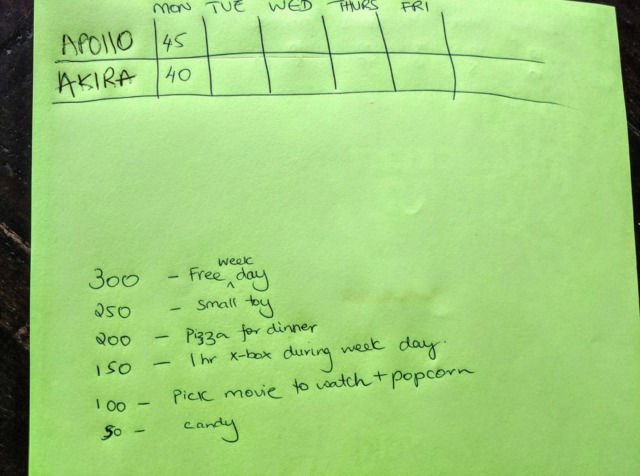 MON TUE WED THURS FRI
APOLLO 45
AKIRA 40
300 - Free week day
250 - Small toy
200 - Pizza for dinner
150 - 1 hr x-box during week day.
100 - Pick movie to watch + popcorn
50 - candy